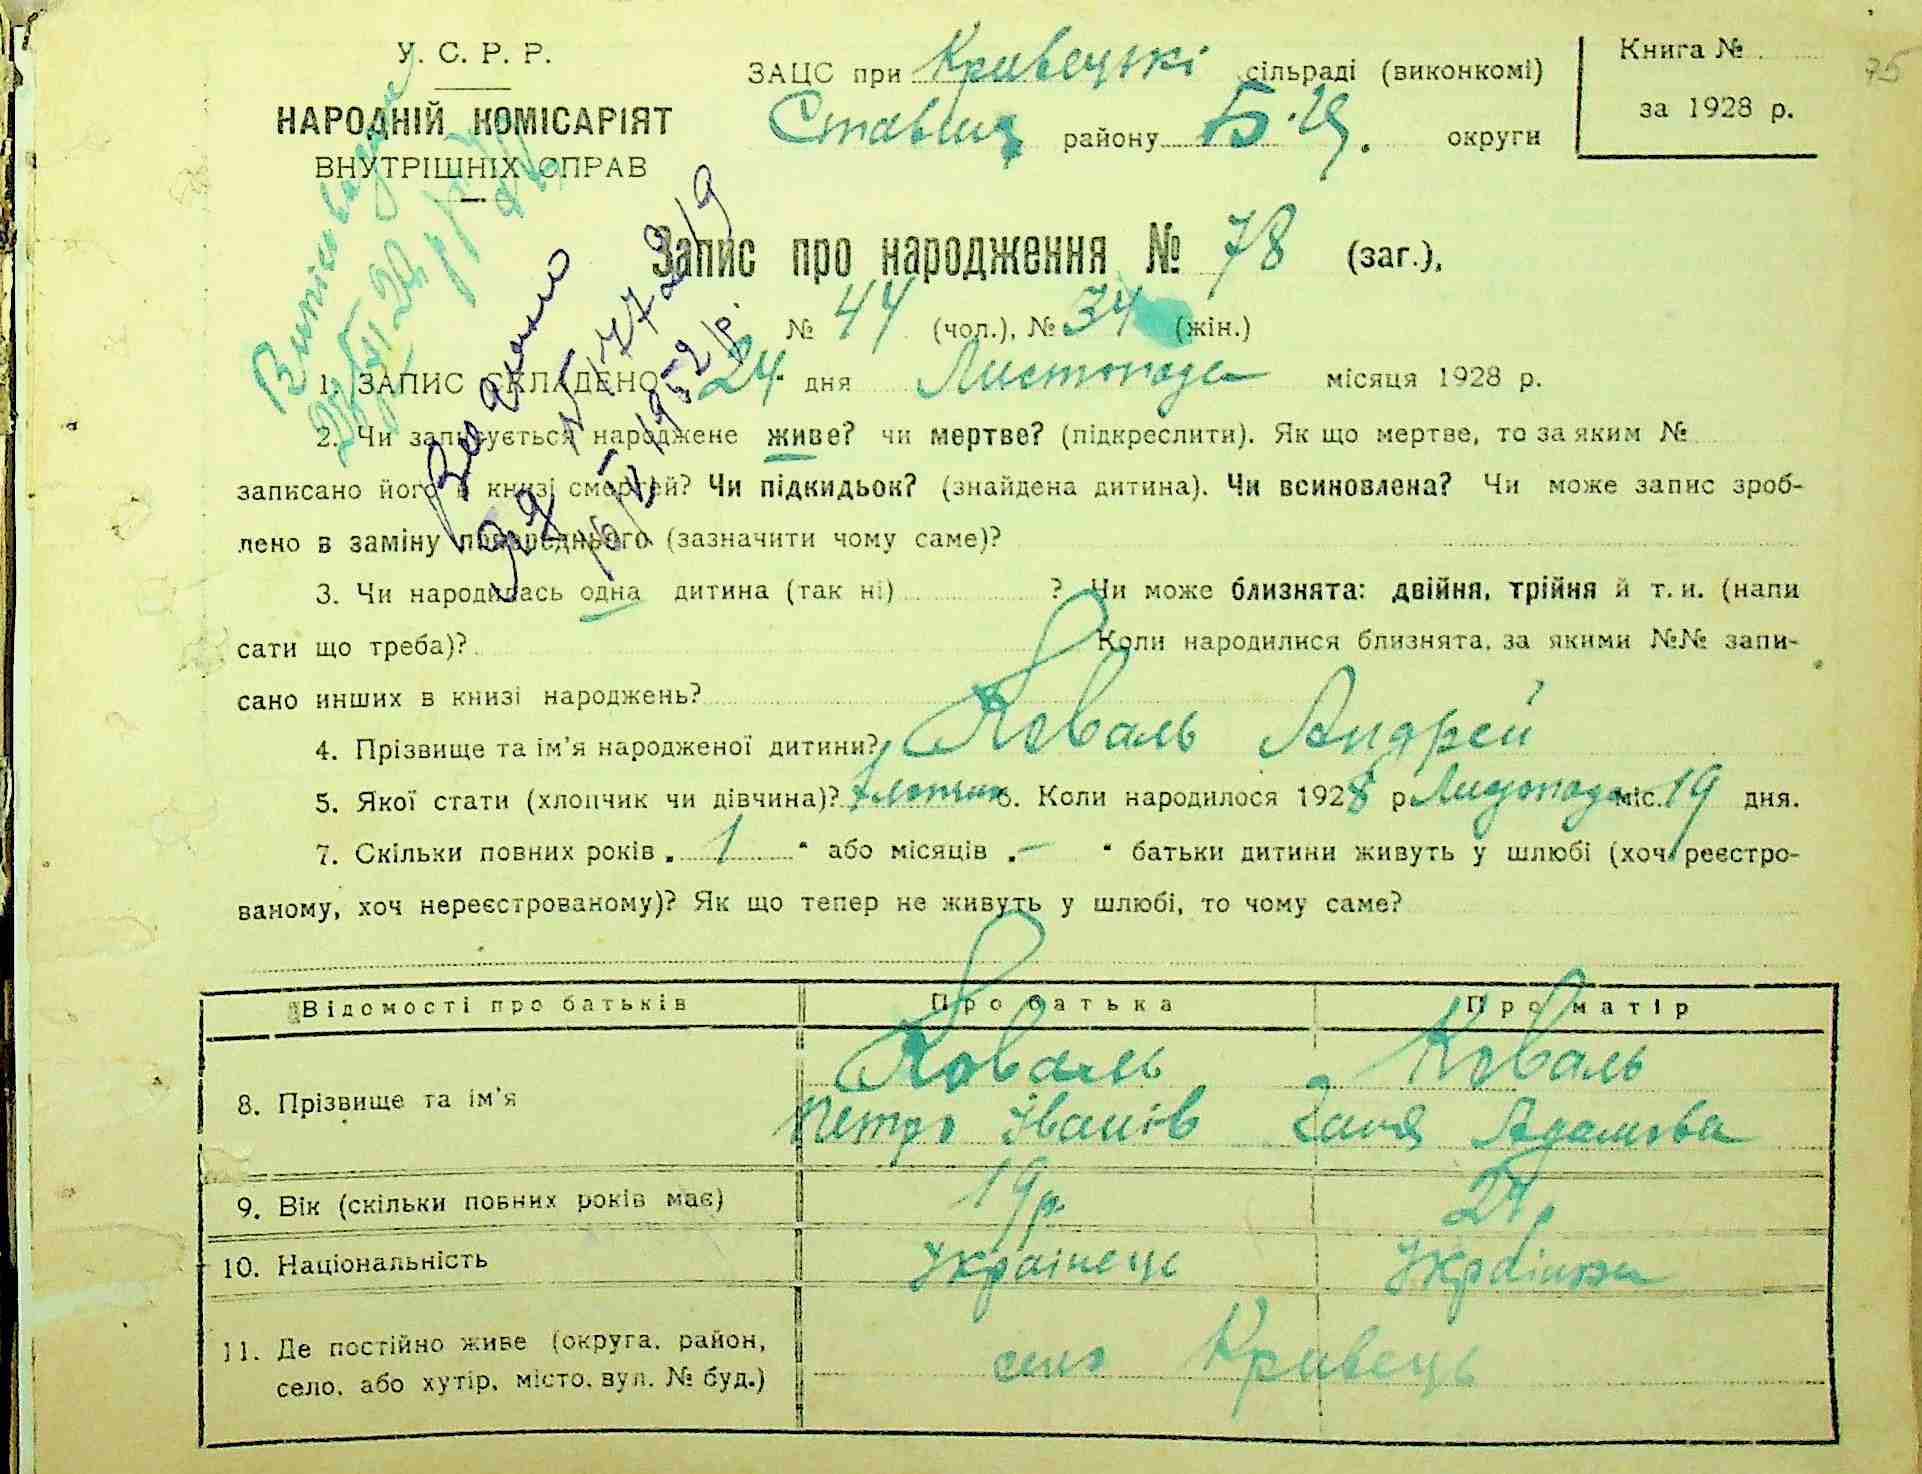 У. С. Р. Р.
НАРОДНІЙ КОМІСАРІЯТ
ВНУТРІШНІХ СПРАВ
ЗАЦС при Кривецькі сільраді (виконкомі)
Ставищ району Б.Ц. округи
Книга №
за 1928 р.
75
Запис про народження № 78 (заг.),
№ 44 (чол.), № 34 (жін.)
1. ЗАПИС СКЛАДЕНО 24 дня Листопада місяця 1928 р.
2. Чи записується народжене живе? чи мертве? (підкреслити). Як що мертве, то за яким №
записано його в книзі смертей? Чи підкидьок? (знайдена дитина). Чи всиновлена? Чи може запис зроб-
лено в заміну попереднього (зазначити чому саме)?
3. Чи народилась одна дитина (так ні) ? Чи може близнята: двійня, трійня й т. и. (напи
сати що треба)? Коли народилися близнята, за якими №№ запи-
сано инших в книзі народжень?
4. Прізвище та ім'я народженої дитини? Коваль Андрей
5. Якої стати (хлопчик чи дівчина)? хлопчик 6. Коли народилося 1928 р Листопада міс. 19 дня.
7. Скільки повних років „ 1 “ або місяців „ – “ батьки дитини живуть у шлюбі (хоч реєстро-
ваному, хоч нереєстрованому)? Як що тепер не живуть у шлюбі, то чому саме?
Відомості про батьків Про батька Про матір
8. Прізвище та ім'я
Коваль Коваль
Петро Іванів Ганя Адамова
9. Вік (скільки повних років має) 19 р. 24 р
10. Національність Українець Українка
11. Де постійно живе (округа, район,
село, або хутір, місто, вул. № буд.)
село Кривець